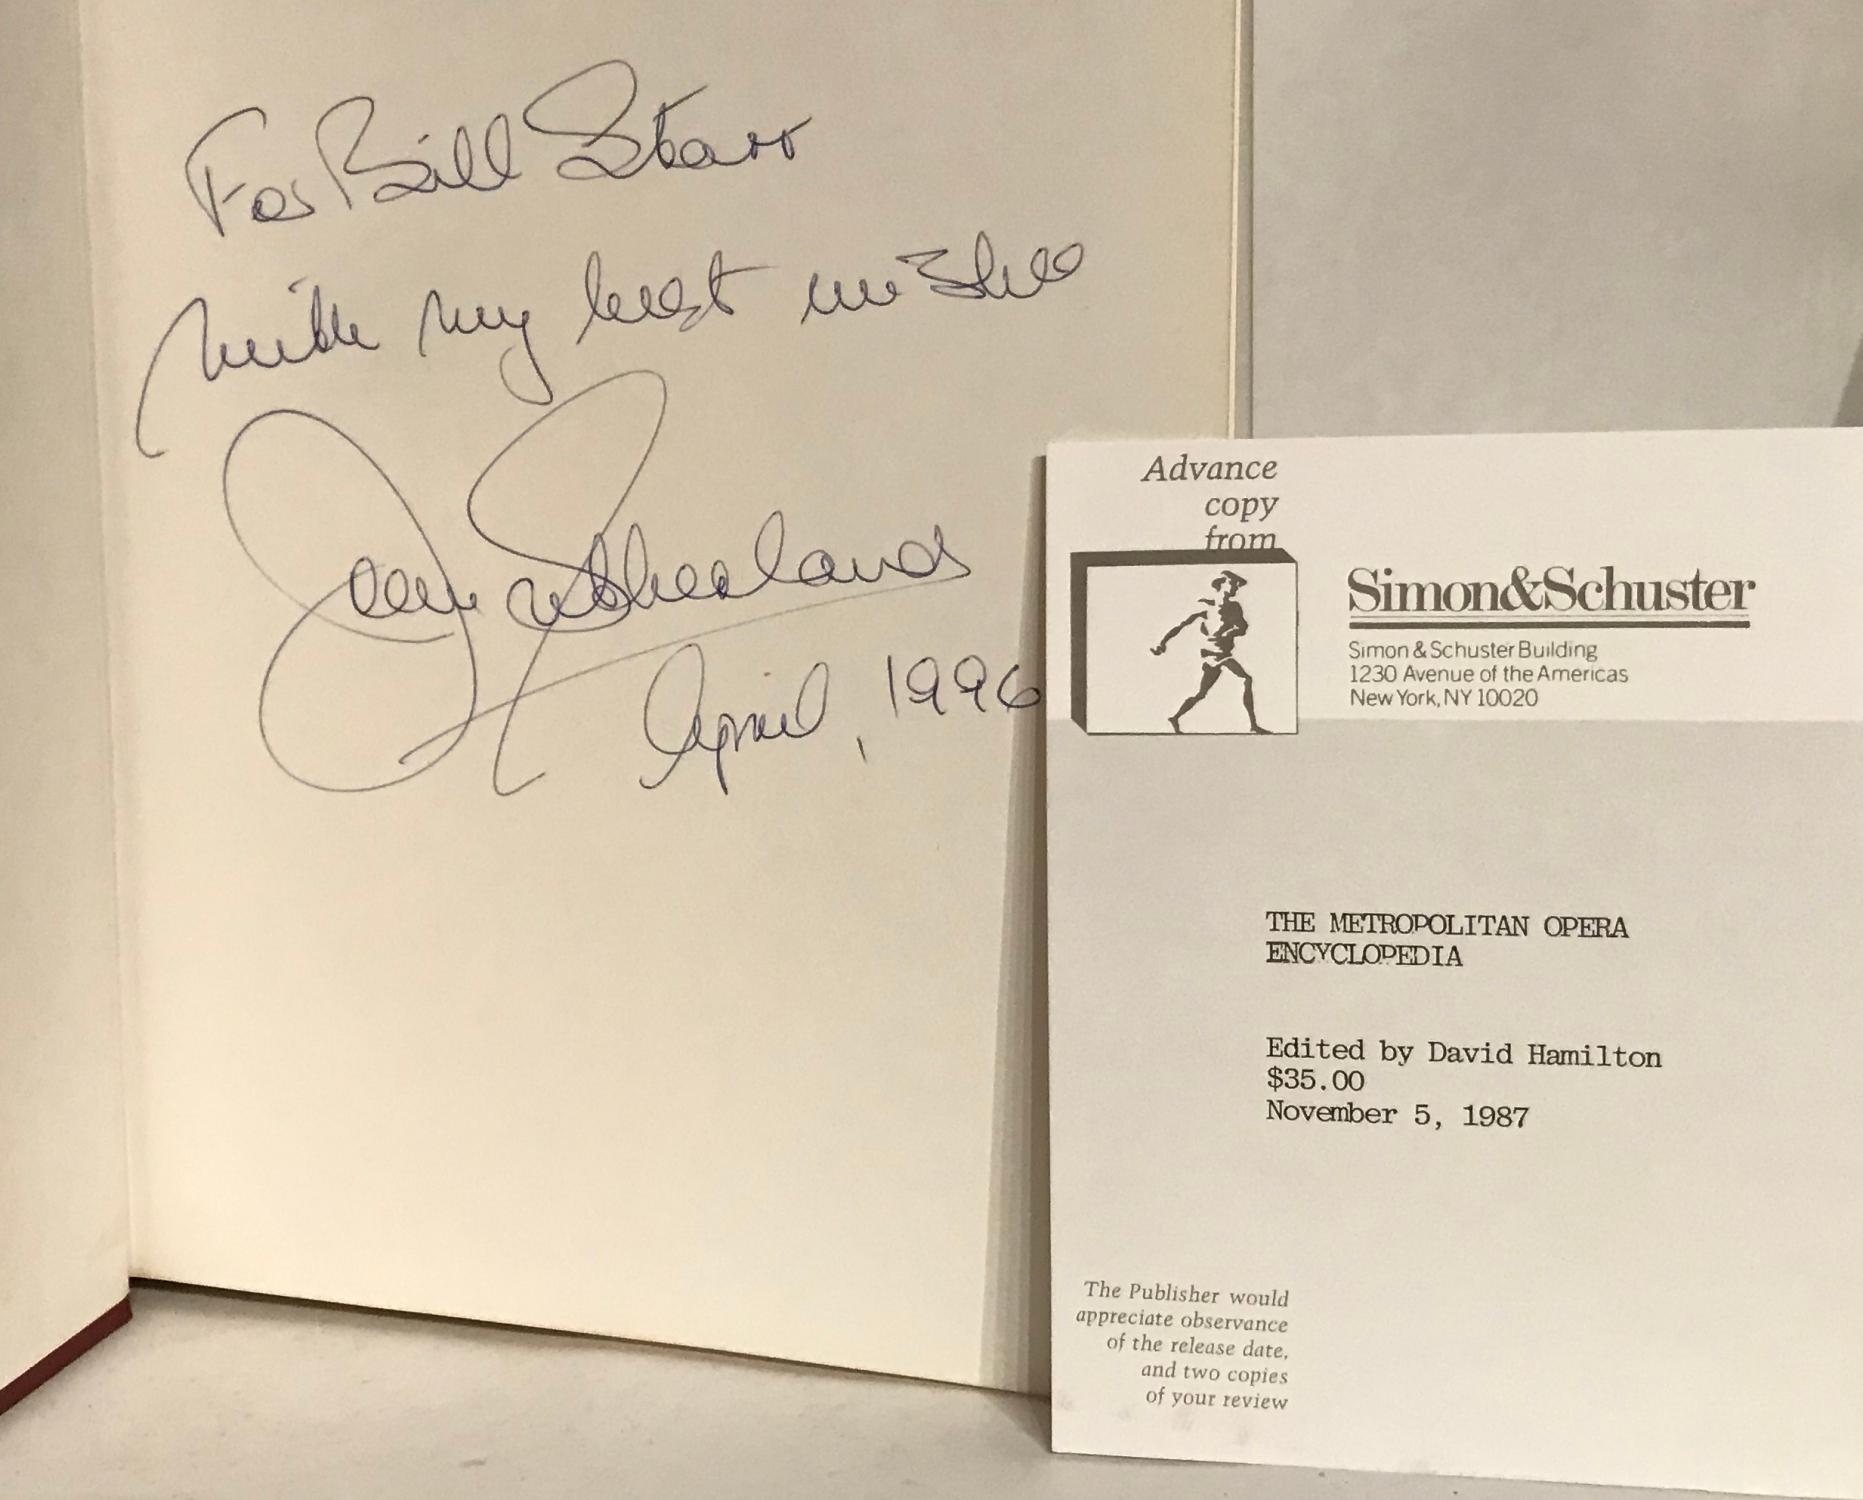 For Bill Starr
with my best wishes
Joan Sutherland
April, 1996
Advance
copy
from
Simon&Schuster
Simon & Schuster Building
1230 Avenue of the Americas
New York, NY 10020
THE METROPOLITAN OPERA
ENCYCLOPEDIA
Edited by David Hamilton
$35.00
November 5, 1987
The Publisher would
appreciate observance
of the release date,
and two copies
of your review